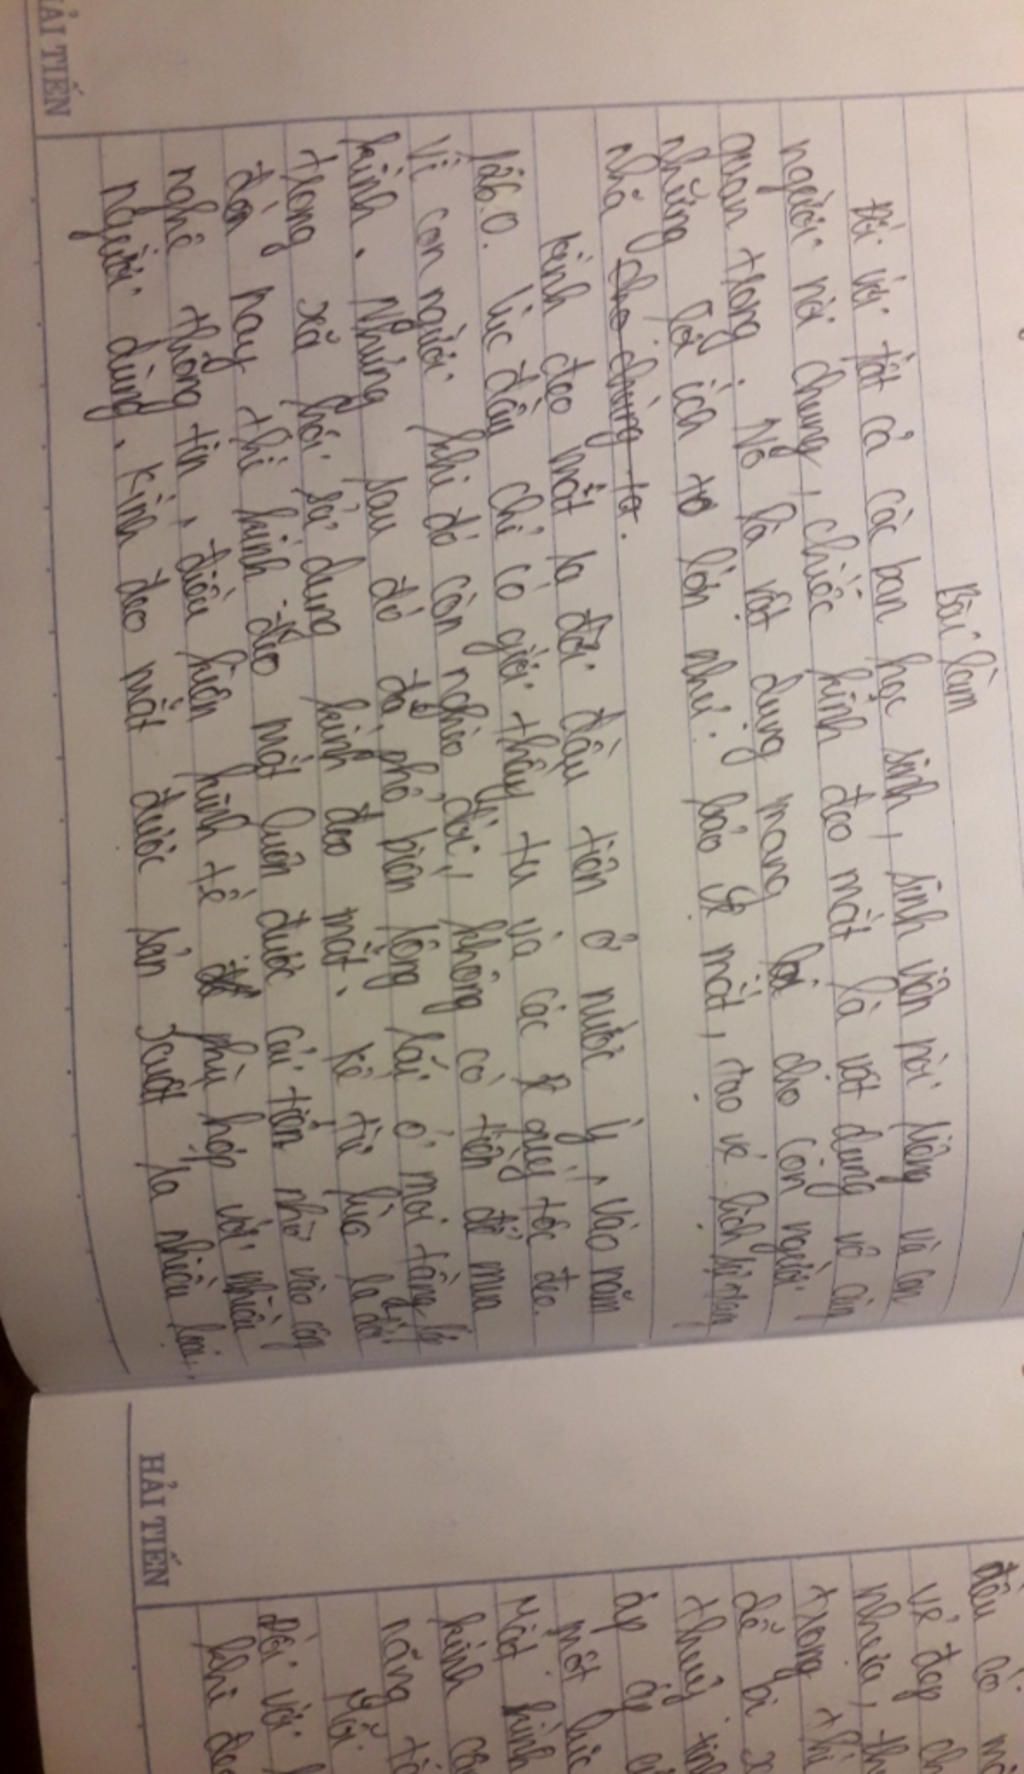 Bài làm
Đối với tất cả các bạn học sinh, sinh viên nói riêng và con
người nói chung, chiếc kính đeo mắt là vật dụng vô cùng
quan trọng. Nó là vật dụng mang lại cho con người
những lợi ích to lớn như: bảo vệ mắt, tạo vẻ lịch sự
nhã cho chúng ta.
Kính đeo mắt ra đời đầu tiên ở nước Ý, vào năm
1260. Lúc đầu chỉ có giới thầy tu và các quý tộc đeo.
Vì con người khi đó còn nghèo đói, không có tiền để mua
kính. Nhưng sau đó đã phổ biến rộng rãi ở mọi tầng lớp
trong xã hội sử dụng kính đeo mắt. Kể từ lúc ra đời
đến nay thì kính đeo mắt luôn được cải tiến nhờ vào công
nghệ thông tin, điều kiện kinh tế phù hợp với nhiều
người dùng. Kính đeo mắt được sản xuất ra nhiều loại,
HẢI TIẾN
đều có
vẻ đẹp
nhựa,
trong thi
dễ bị
thuỷ tinh
áp
một
Mắt kính
kính
năng
Mỗi
Đối với
khi đeo
HẢI TIẾN